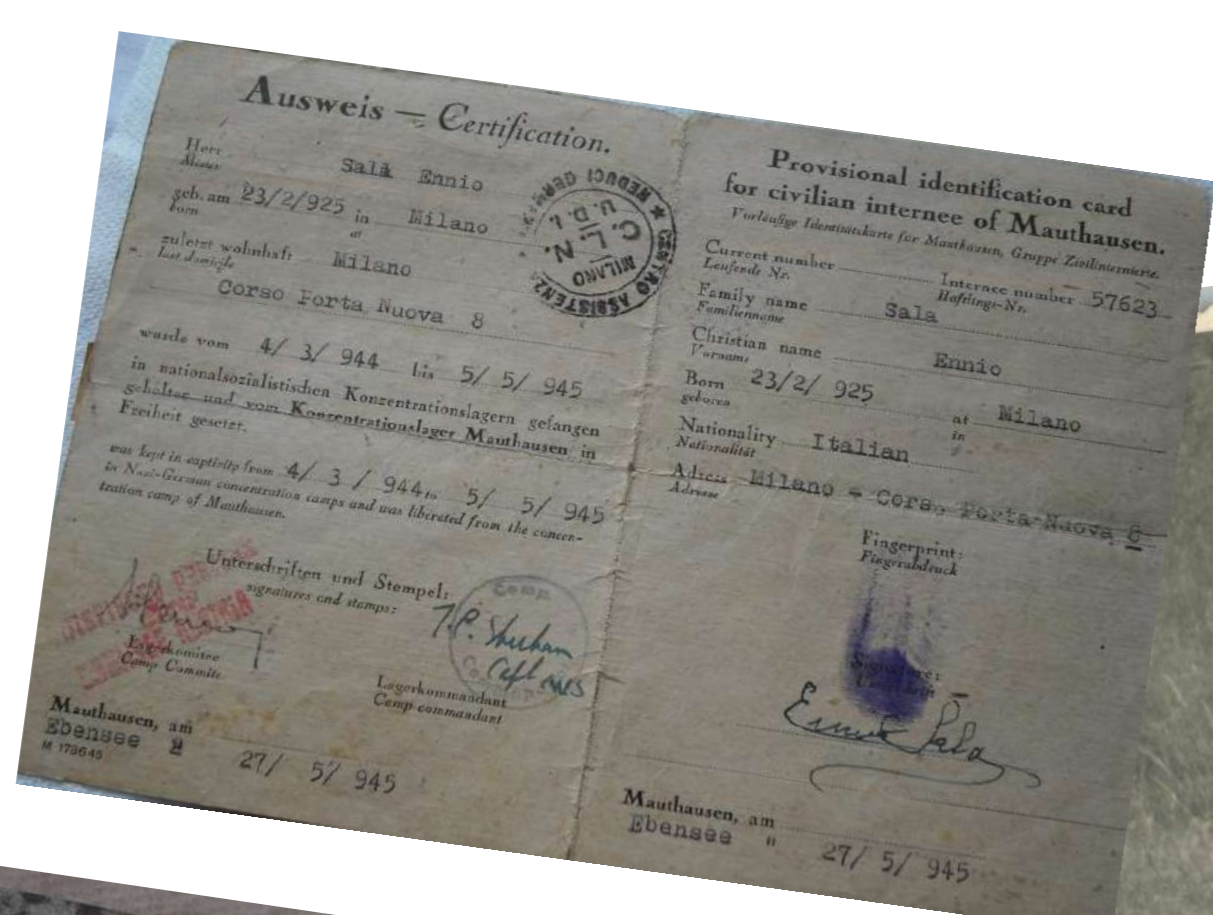 Ausweis — Certification.
Herr Sala Ennio
Mister
geb. am 23/2/925 in Milano
born at
zuletzt wohnhaft Milano
last domicile
Corso Porta Nuova 8
wurde vom 4/ 3/ 944 bis 5/ 5/ 945
in nationalsozialistischen Konzentrationslagern gefangen
gehalten und vom Konzentrationslager Mauthausen in
Freiheit gesetzt.
was kept in captivity from 4/ 3 / 944 to 5/ 5/ 945
in Nazi-German concentration camps and was liberated from the concen-
tration camp of Mauthausen.
Unterschriften und Stempel:
signatures and stamps:
Camp
Capt
Lagerkomitee
Camp Committe
Lagerkommandant
Camp-commandant
Mauthausen, am
Ebensee "
27/ 5/ 945
M 178645
CENTRO ASSISTENZA REDUCI
MILANO
C. L. N.
U. D. I.
Provisional identification card
for civilian internee of Mauthausen.
Vorläufige Identitätskarte für Mauthausen, Gruppe Zivilinternierte.
Current number Internee number 57623
Laufende Nr. Häftlings-Nr.
Family name Sala
Familienname
Christian name Ennio
Vorname
Born 23/2/ 925 at Milano
geboren in
Nationality Italian
Nationalität
Adress Milano - Corso Porta Nuova 8
Adresse
Fingerprint:
Fingerabdruck
Signature:
Ennio Sala
Mauthausen, am
Ebensee "
27/ 5/ 945